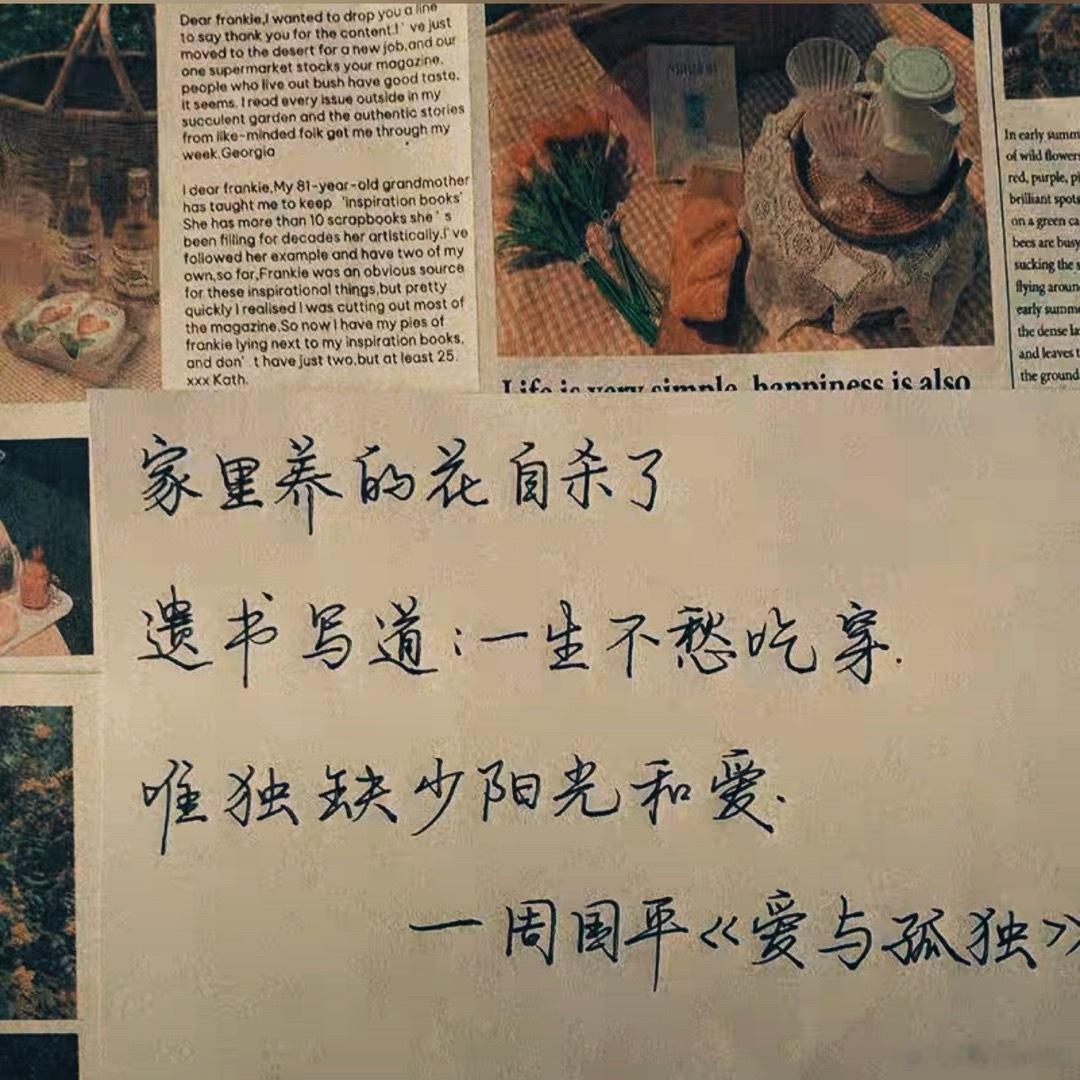 Dear frankie,I wanted to drop you a line
to say thank you for the content.I've just
moved to the desert for a new job,and our
one supermarket stocks your magazine.
people who live out bush have good taste,
it seems. I read every issue outside in my
succulent garden and the authentic stories
from like-minded folk get me through my
week.Georgia
I dear frankie,My 81-year-old grandmother
has taught me to keep 'inspiration books'
She has more than 10 scrapbooks she's
been filling for decades her artistically.I've
followed her example and have two of my
own,so far,Frankie was an obvious source
for these inspirational things,but pretty
quickly I realised I was cutting out most of
the magazine.So now I have my pies of
frankie lying next to my inspiration books,
and don't have just two,but at least 25.
xxx Kath.
Life is very simple, happiness is also
In early summ
of wild flowers
red, purple, pi
brilliant spots
on a green ca
bees are busy
sucking the s
flying aroun
early summe
the dense la
and leaves t
the ground
家里养的花自杀了
遗书写道:一生不愁吃穿.
唯独缺少阳光和爱.
—周国平《爱与孤独》